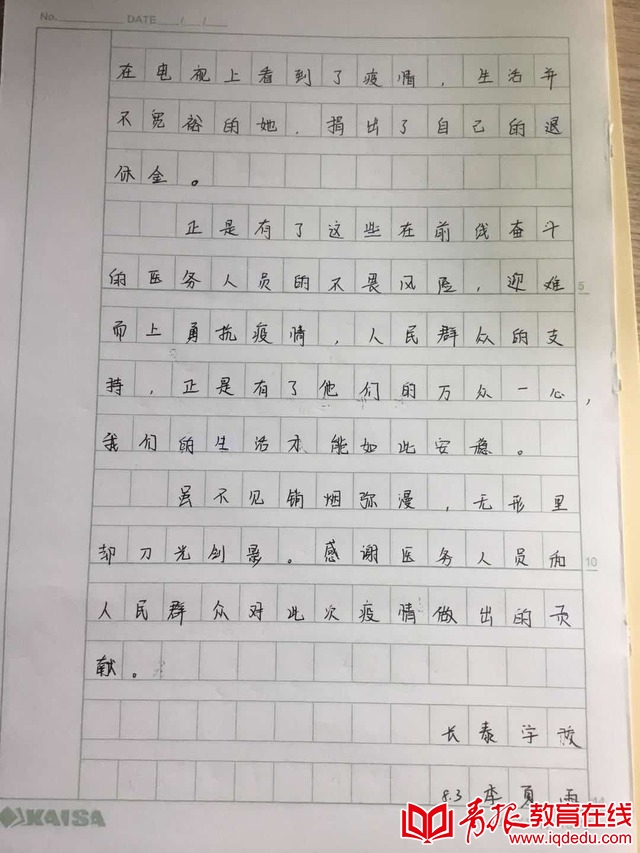 No. DATE / /
在电视上看到了疫情，生活并
不宽裕的她，捐出了自己的退
休金。
正是有了这些在前线奋斗
的医务人员的不畏风险，迎难
5
而上勇抗疫情，人民群众的支
持，正是有了他们的万众一心，
我们的生活才能如此安稳。
虽不见销烟弥漫，无形里
却刀光剑影。感谢医务人员和
10
人民群众对此次疫情做出的贡
献。
长泰学校
8.3 李夏雨
KAISA
青报教育在线
www.iqdedu.com